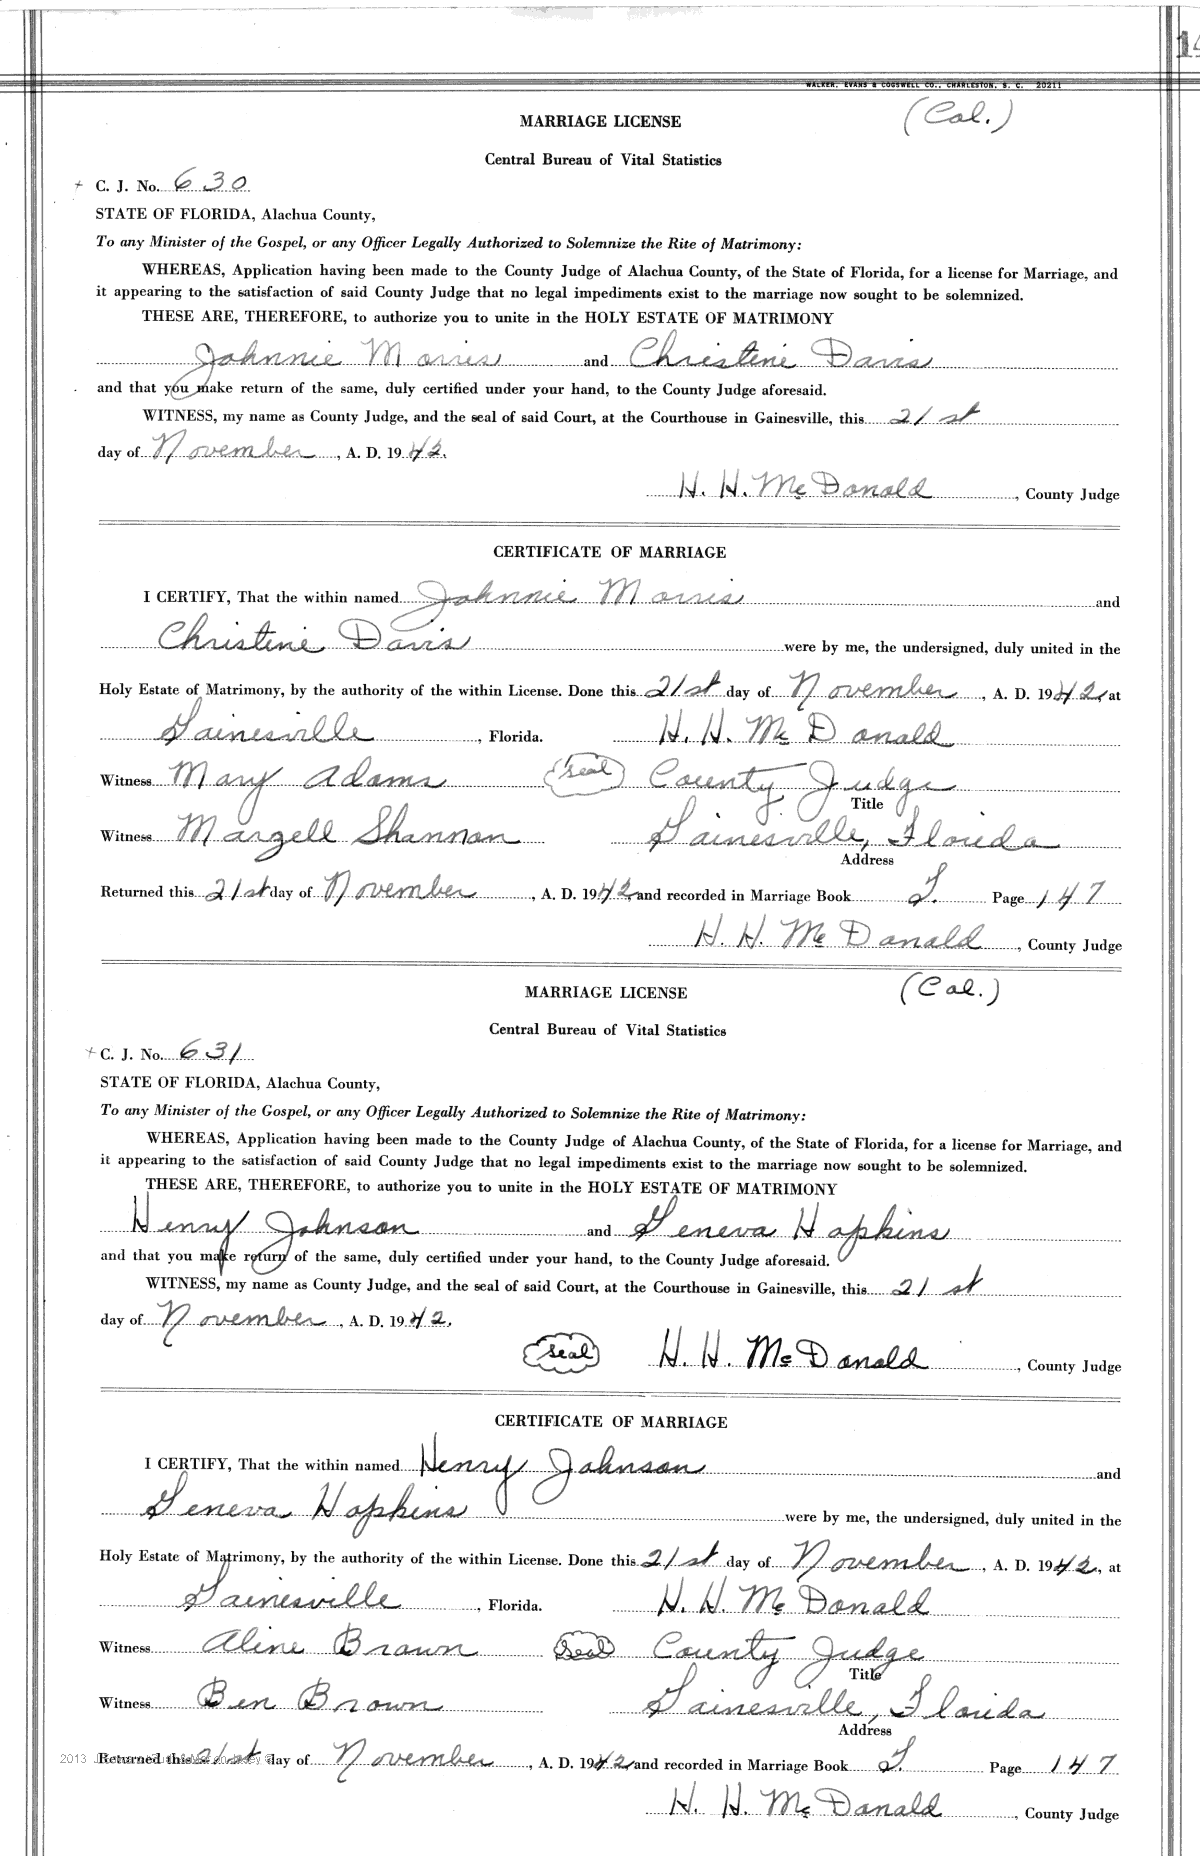 14
WALKER, EVANS & COGSWELL CO., CHARLESTON, S. C. 20211
MARRIAGE LICENSE (Col.)
Central Bureau of Vital Statistics
+ C. J. No. 630
STATE OF FLORIDA, Alachua County,
To any Minister of the Gospel, or any Officer Legally Authorized to Solemnize the Rite of Matrimony:
WHEREAS, Application having been made to the County Judge of Alachua County, of the State of Florida, for a license for Marriage, and
it appearing to the satisfaction of said County Judge that no legal impediments exist to the marriage now sought to be solemnized.
THESE ARE, THEREFORE, to authorize you to unite in the HOLY ESTATE OF MATRIMONY
Johnnie Morris and Christine Davis
and that you make return of the same, duly certified under your hand, to the County Judge aforesaid.
WITNESS, my name as County Judge, and the seal of said Court, at the Courthouse in Gainesville, this 21st
day of November, A. D. 1942.
H. H. McDonald, County Judge
CERTIFICATE OF MARRIAGE
I CERTIFY, That the within named Johnnie Morris and
Christine Davis were by me, the undersigned, duly united in the
Holy Estate of Matrimony, by the authority of the within License. Done this 21st day of November, A. D. 1942, at
Gainesville, Florida. H. H. McDonald
Witness Mary Adams (seal) County Judge
Title
Witness Margell Shannon Gainesville, Florida
Address
Returned this 21st day of November, A. D. 1942 and recorded in Marriage Book T. Page 147
H. H. McDonald, County Judge
MARRIAGE LICENSE (Col.)
Central Bureau of Vital Statistics
+ C. J. No. 631
STATE OF FLORIDA, Alachua County,
To any Minister of the Gospel, or any Officer Legally Authorized to Solemnize the Rite of Matrimony:
WHEREAS, Application having been made to the County Judge of Alachua County, of the State of Florida, for a license for Marriage, and
it appearing to the satisfaction of said County Judge that no legal impediments exist to the marriage now sought to be solemnized.
THESE ARE, THEREFORE, to authorize you to unite in the HOLY ESTATE OF MATRIMONY
Henry Johnson and Geneva Hopkins
and that you make return of the same, duly certified under your hand, to the County Judge aforesaid.
WITNESS, my name as County Judge, and the seal of said Court, at the Courthouse in Gainesville, this 21st
day of November, A. D. 1942.
(seal) H. H. McDonald, County Judge
CERTIFICATE OF MARRIAGE
I CERTIFY, That the within named Henry Johnson and
Geneva Hopkins were by me, the undersigned, duly united in the
Holy Estate of Matrimony, by the authority of the within License. Done this 21st day of November, A. D. 1942, at
Gainesville, Florida. H. H. McDonald
Witness Aline Brown (seal) County Judge
Title
Witness Ben Brown Gainesville, Florida
Address
2013
Returned this 21st day of November, A. D. 1942 and recorded in Marriage Book T. Page 147
H. H. McDonald, County Judge